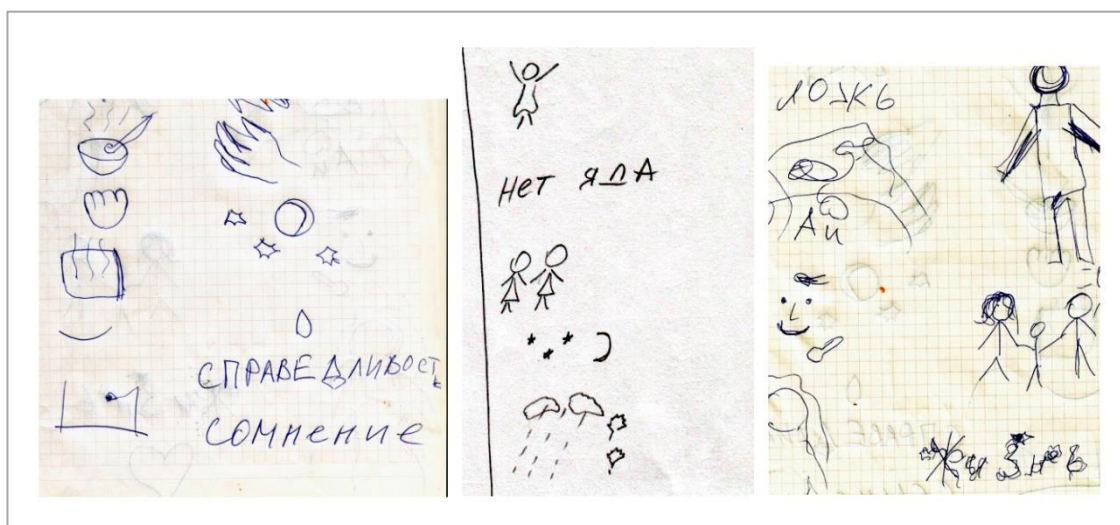 СПРАВЕДЛИВОСТЬ
СОМНЕНИЕ
НЕТ ЯДА
ЛОЖЬ
Ай
Жизнь